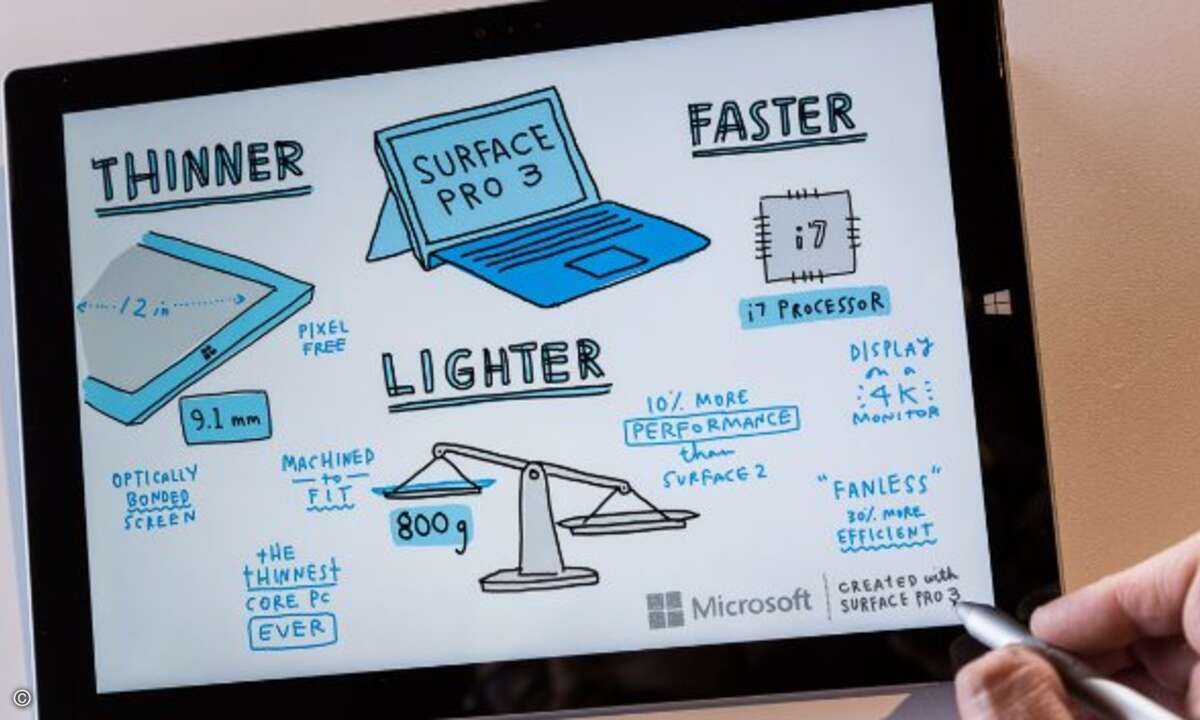 THINNER
SURFACE
PRO 3
FASTER
12 in
PIXEL
FREE
9.1 mm
i7
i7 PROCESSOR
LIGHTER
DISPLAY
on a
4K
MONITOR
10% MORE
PERFORMANCE
than
SURFACE 2
OPTICALLY
BONDED
SCREEN
MACHINED
to
FIT
800g
"FANLESS"
30% MORE
EFFICIENT
tHE
tHINNESt
CORE PC
EVER
Microsoft
CREATED with
SURFACE PRO 3
©